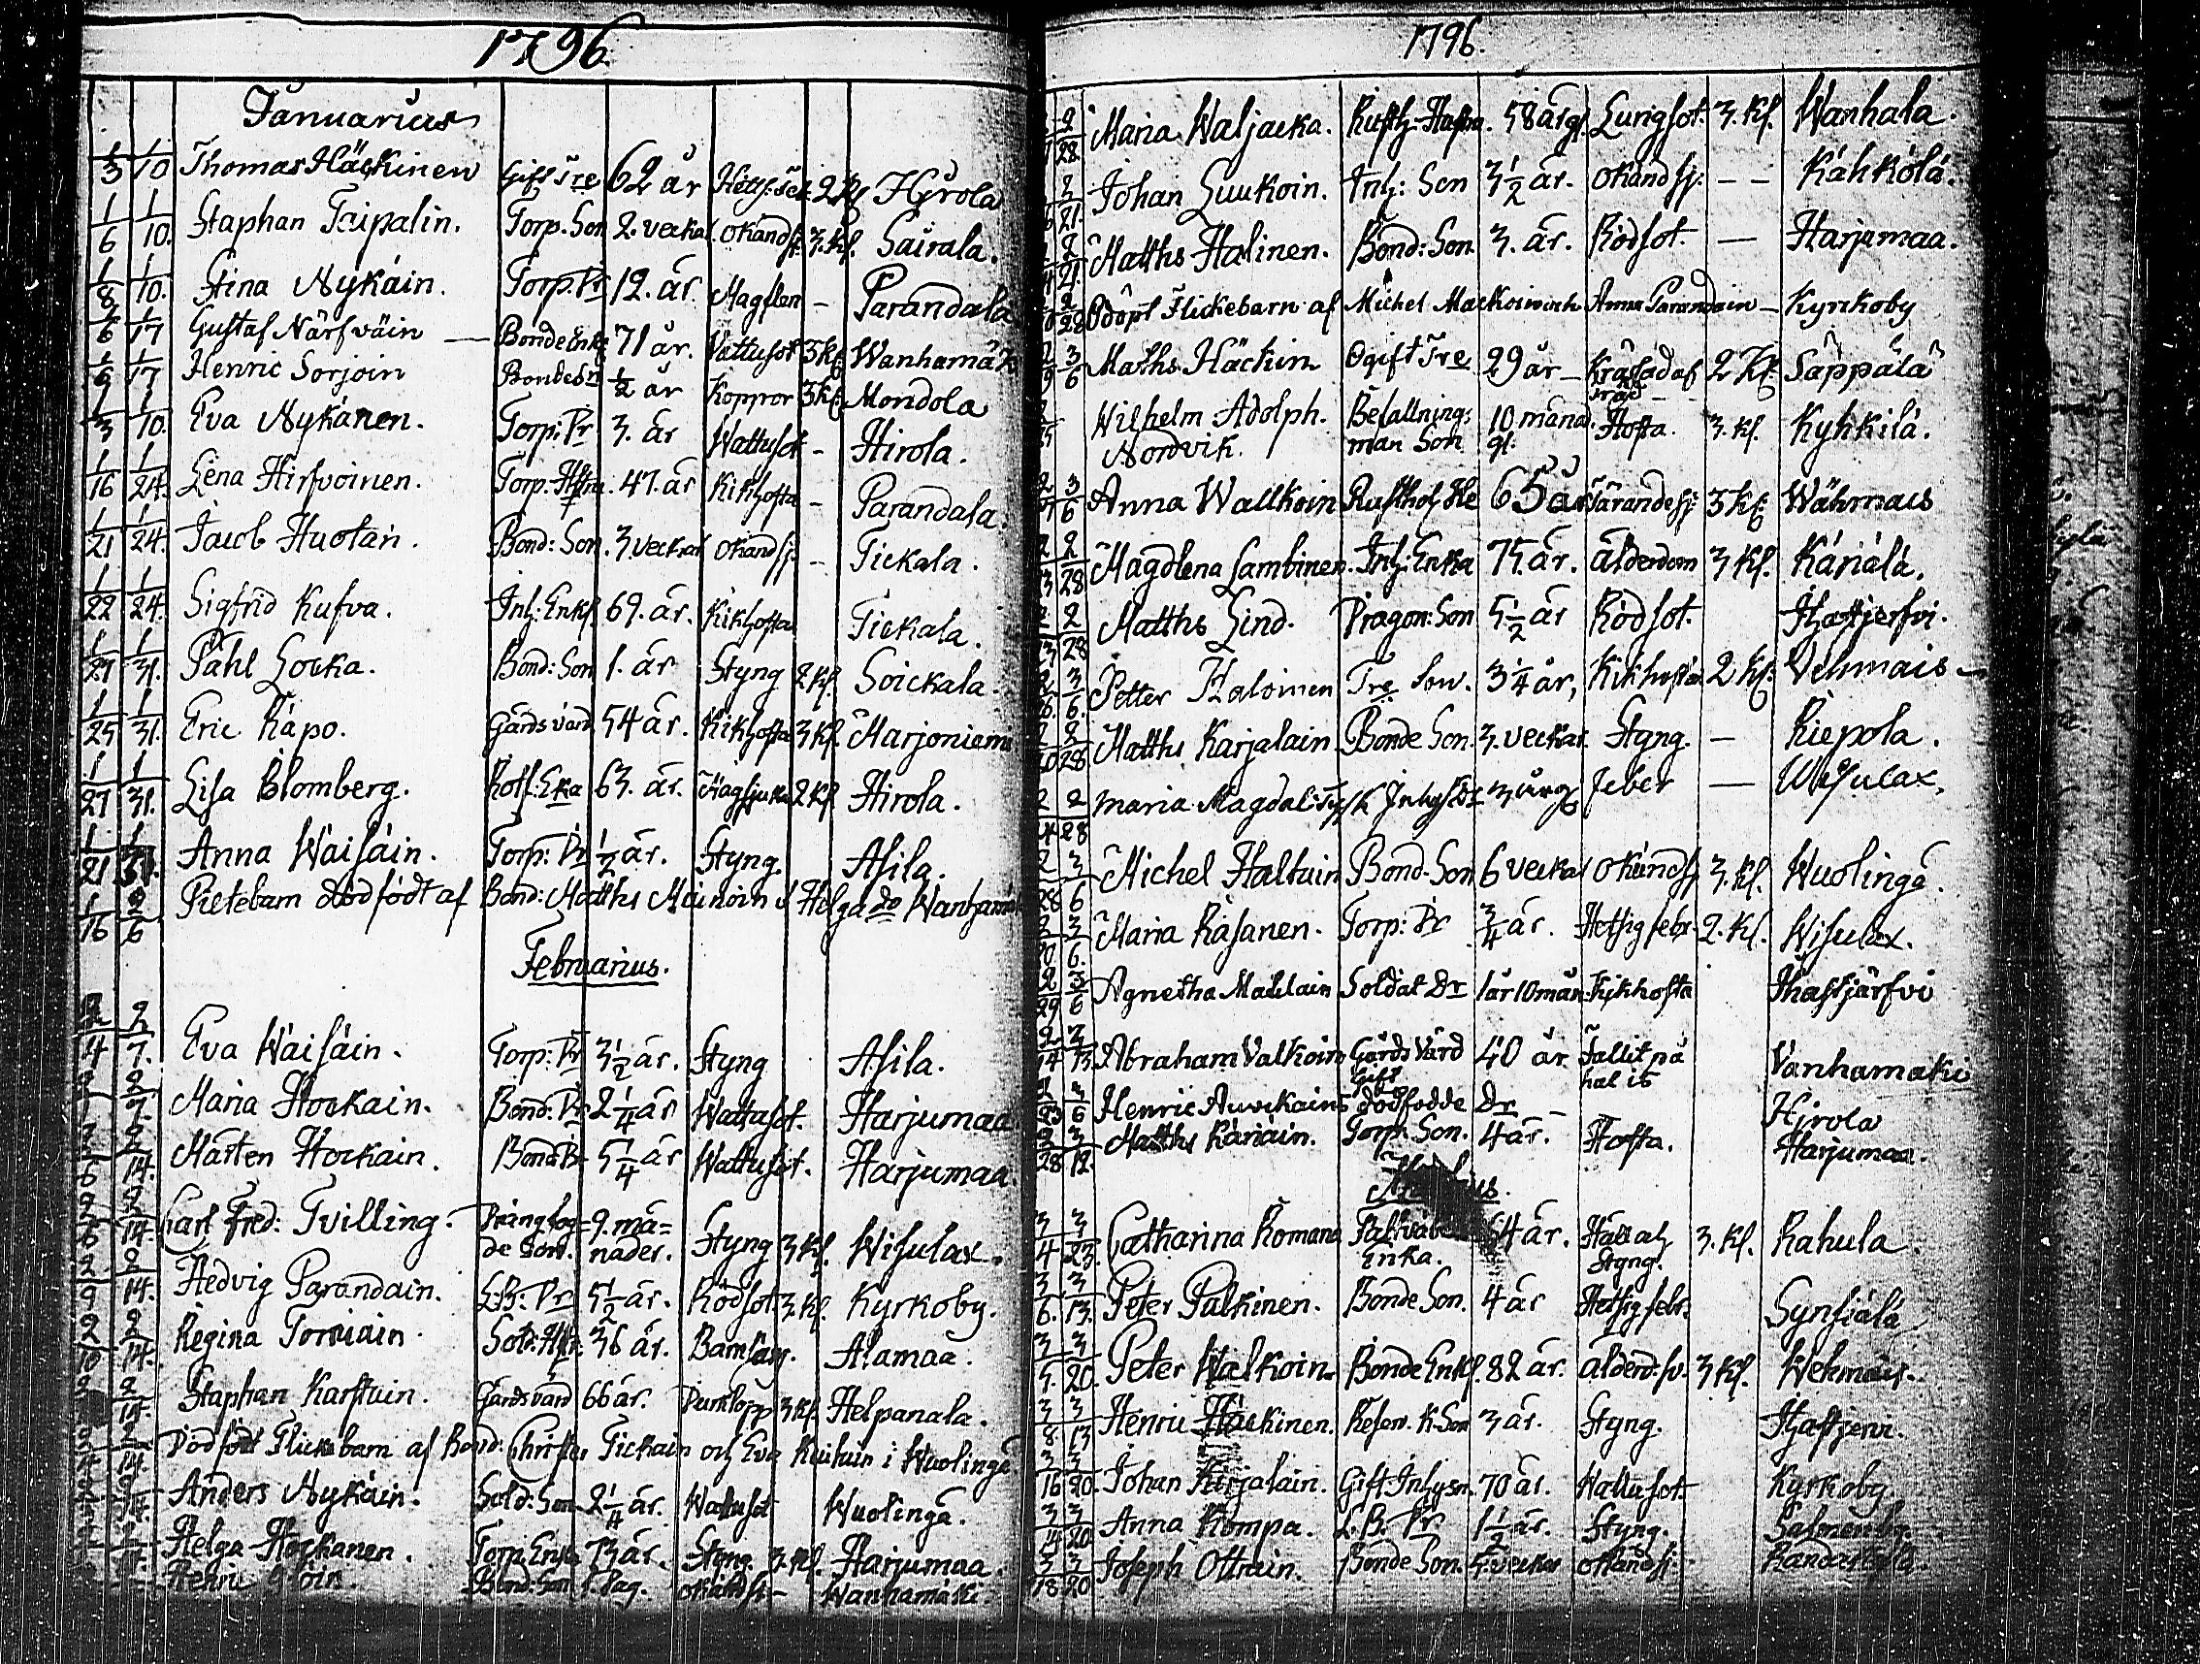 1796.
Januarius
1/3 1/10 Thomas Häckinen Gift Tre 62 år 2 Kl. Hirola
1/6 1/10. Staphan Taipalin. Torp. Son 2. veckar. okänd sj. 3. Kl. Sairala.
1/8 1/10. Stina Nykäin. Torp. Dr 12. år. Magplan - Parandala
1/6 1/17 Gustaf Närfväin — Bonde Enkl. 71 år. Vattusot 3 Kl. Wanhamäk
1/9 1/17 Henric Sorjoin Bonde Sn 1/2 år Koppor 3 Kl. Mondola
1/3 1/10. Eva Nykänen. Torp: Dr 3. år Wattusot - Hirola.
1/16 1/24. Lena Hirfvoinen. Torp. Hstra. 47. år Kikhosta - Parandala.
1/21 1/24. Jacob Huotain. Bond: Son. 3 veckar okänd sj. - Tickala.
1/22 1/24. Sigfrid Kufva. Inh: Enkl. 69. år. Kikhosta Tickala.
1/27 1/31. Påhl Locka. Bond: Son 1. år Styng 2 Kl. Soickala.
1/25 1/31. Eric Käpo. Gårds värd 54 år. Kikhosta 3 Kl. Marjoniemi
1/27 1/31. Lisa Blomberg. Rotf: Eka 63. år. Magsjuka 2 Kl Hirola.
1/21 1/31. Anna Wäisäin. Torp: Dr 1/2 år. Styng. Asila.
1/16 2/6 Piltebarn dödfödt af Bond: Matths Mäinoin & Helga do Wanhamä
Februarius.
2/4 2/7. Eva Wäisäin. Torp: Dr 3 1/2 år. Styng Asila.
2/1 2/7. Maria Hockain. Bond: Dr 2 1/4 år Wattusot. Harjumaa
2/6 2/14. Mårten Hockain. Bond 5 1/4 år Wattusot. Harjumaa.
2/6 2/14. Carl Fred: Tvilling. Drängfog=
de Son. 9. må=
nader. Styng 3 Kl. Wisulax.
2/9 2/14. Hedvig Parandain. L.B: Dr 5 1/2 år. Rödsot. 3. Kl. Kyrkoby.
2/10 2/14. Regina Torniain. 36 år. Barnsäng. Alamaa.
2/14. Staphan Karstuin. Gårds värd 66 år. Durklopp 3 Kl. Helpanala.
2/4 2/14. Dödfödt Flickebarn af Bond: Christer Tickain och Eva Kuituin i Wuolinga
Anders Nykäin. Sold: Son 2 1/4 år. Wattusot Wuolinga.
Helga Hockanen. Torp. Enka 73 år. Styng. 3. Kl. Harjumaa.
Henric Bond: Son 1. Dag. okänd sj - Wanhamäki.
1796.
2/28 Maria Waljacka. Rusth. Hustru. 58 årg. Lungsot. 3. Kl. Wanhala.
2/21. Johan Luukoin. Inh: Son 3 1/2 år. okänd sj. — — Kähkölä.
2/21. Matths Halinen. Bond: Son. 3. år. Rödsot. — Harjumaa.
2/28 Odöpt Flickebarn af Michel Mackoin och Anna Parandain — Kyrkoby
2/9 3/6 Maths Häckin Ogift Tre 29 år — Kråssad af
träd — 2 Kl. Säppälä
Wilhelm Adolph.
Nordvik. Befallnings:
man Son 10 månad
gl. Hosta. 3. Kl. Kyhkilä.
3/6 Anna Wallkoin Rusthol He 65 år Tärande sj: 3 Kl. Wähmais
2/13 2/28 Magdlena Lambinen. Inh: Enka 75. år. Ålderdom 3 Kl. Käriälä.
2/13 2/28 Matths Lind. Dragon: Son 5 1/2 år Rödsot. Hastjerfvi.
3/6. Petter Haloinen Tre Son. 3 1/4 år, Kikhosta 2 Kl: Vehmais —
2/20 2/28 Matths Karjalain Bonde Son. 3. veckar. Styng. — Riepola.
2/4 2/28 Maria Magdal: Tysk Inhys Dr 3 årg feber — Wisulax.
2/28 3/6 Michel Haltuin Bond. Son 6 veckar okänd sj 3. Kl. Wuolinga.
3/6. Maria Räsanen. Torp: Dr 3/4 år. Hetsig febr. 2. Kl. Wisulax.
2/29 3/6 Agnetha Maulain Soldat Dr 1 år 10 mån. Kikhosta Hastjärfvi
2/14 2/13 Abraham Valkoin Gårds Värd
gift 40 år Fallit på
hal is Vanhamäki
2/23 3/6 Henric Auvikains dödfödde Dr — Hirola
2/28 3/12. Matths Käriäin. Torp. Son. 4 år. Hosta. Harjumaa.
3/4 3/23. Catharina Romana
Enka. 64 år. Håll och
Styng. 3. Kl. Rahula.
3/6. 3/13. Peter Pulkinen. Bonde Son. 4 år Hetsig febr. Synsiälä
3/5. 3/20. Peter Walkoin. Bonde Enkl. 82 år. ålderd: sv. 3 Kl. Wehmais.
3/8 3/13 Henric Häckinen. Reserv. K. Son 3 år. Styng. Hastjerv.
3/16 3/20. Johan Kirjalain. Gift Inhysn. 70 år. Wattusot. Kyrkoby.
3/14 3/20 Anna Kompa. L.B: Dr 1 1/2 år. Styng. Salmenby.
3/18 3/20 Joseph Ottuin. Bonde Son. 5. veckor okänd sj.